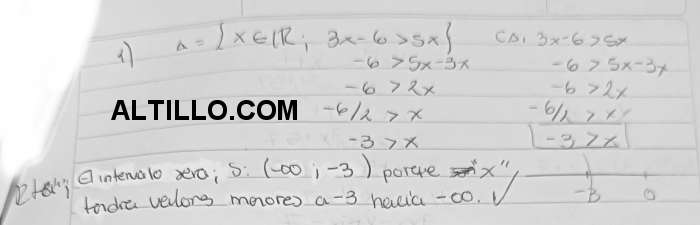 1) A = {x ∈ ℝ; 3x-6 > 5x} CA: 3x-6 > 5x
-6 > 5x-3x -6 > 5x-3x
-6 > 2x -6 > 2x
ALTILLO.COM -6/2 > x -6/2 > x
-3 > x -3 > x
Rta: El intervalo sera; S: (-∞; -3) porque "x"
tendra valores menores a -3 hacia -∞. ✓ -3 0